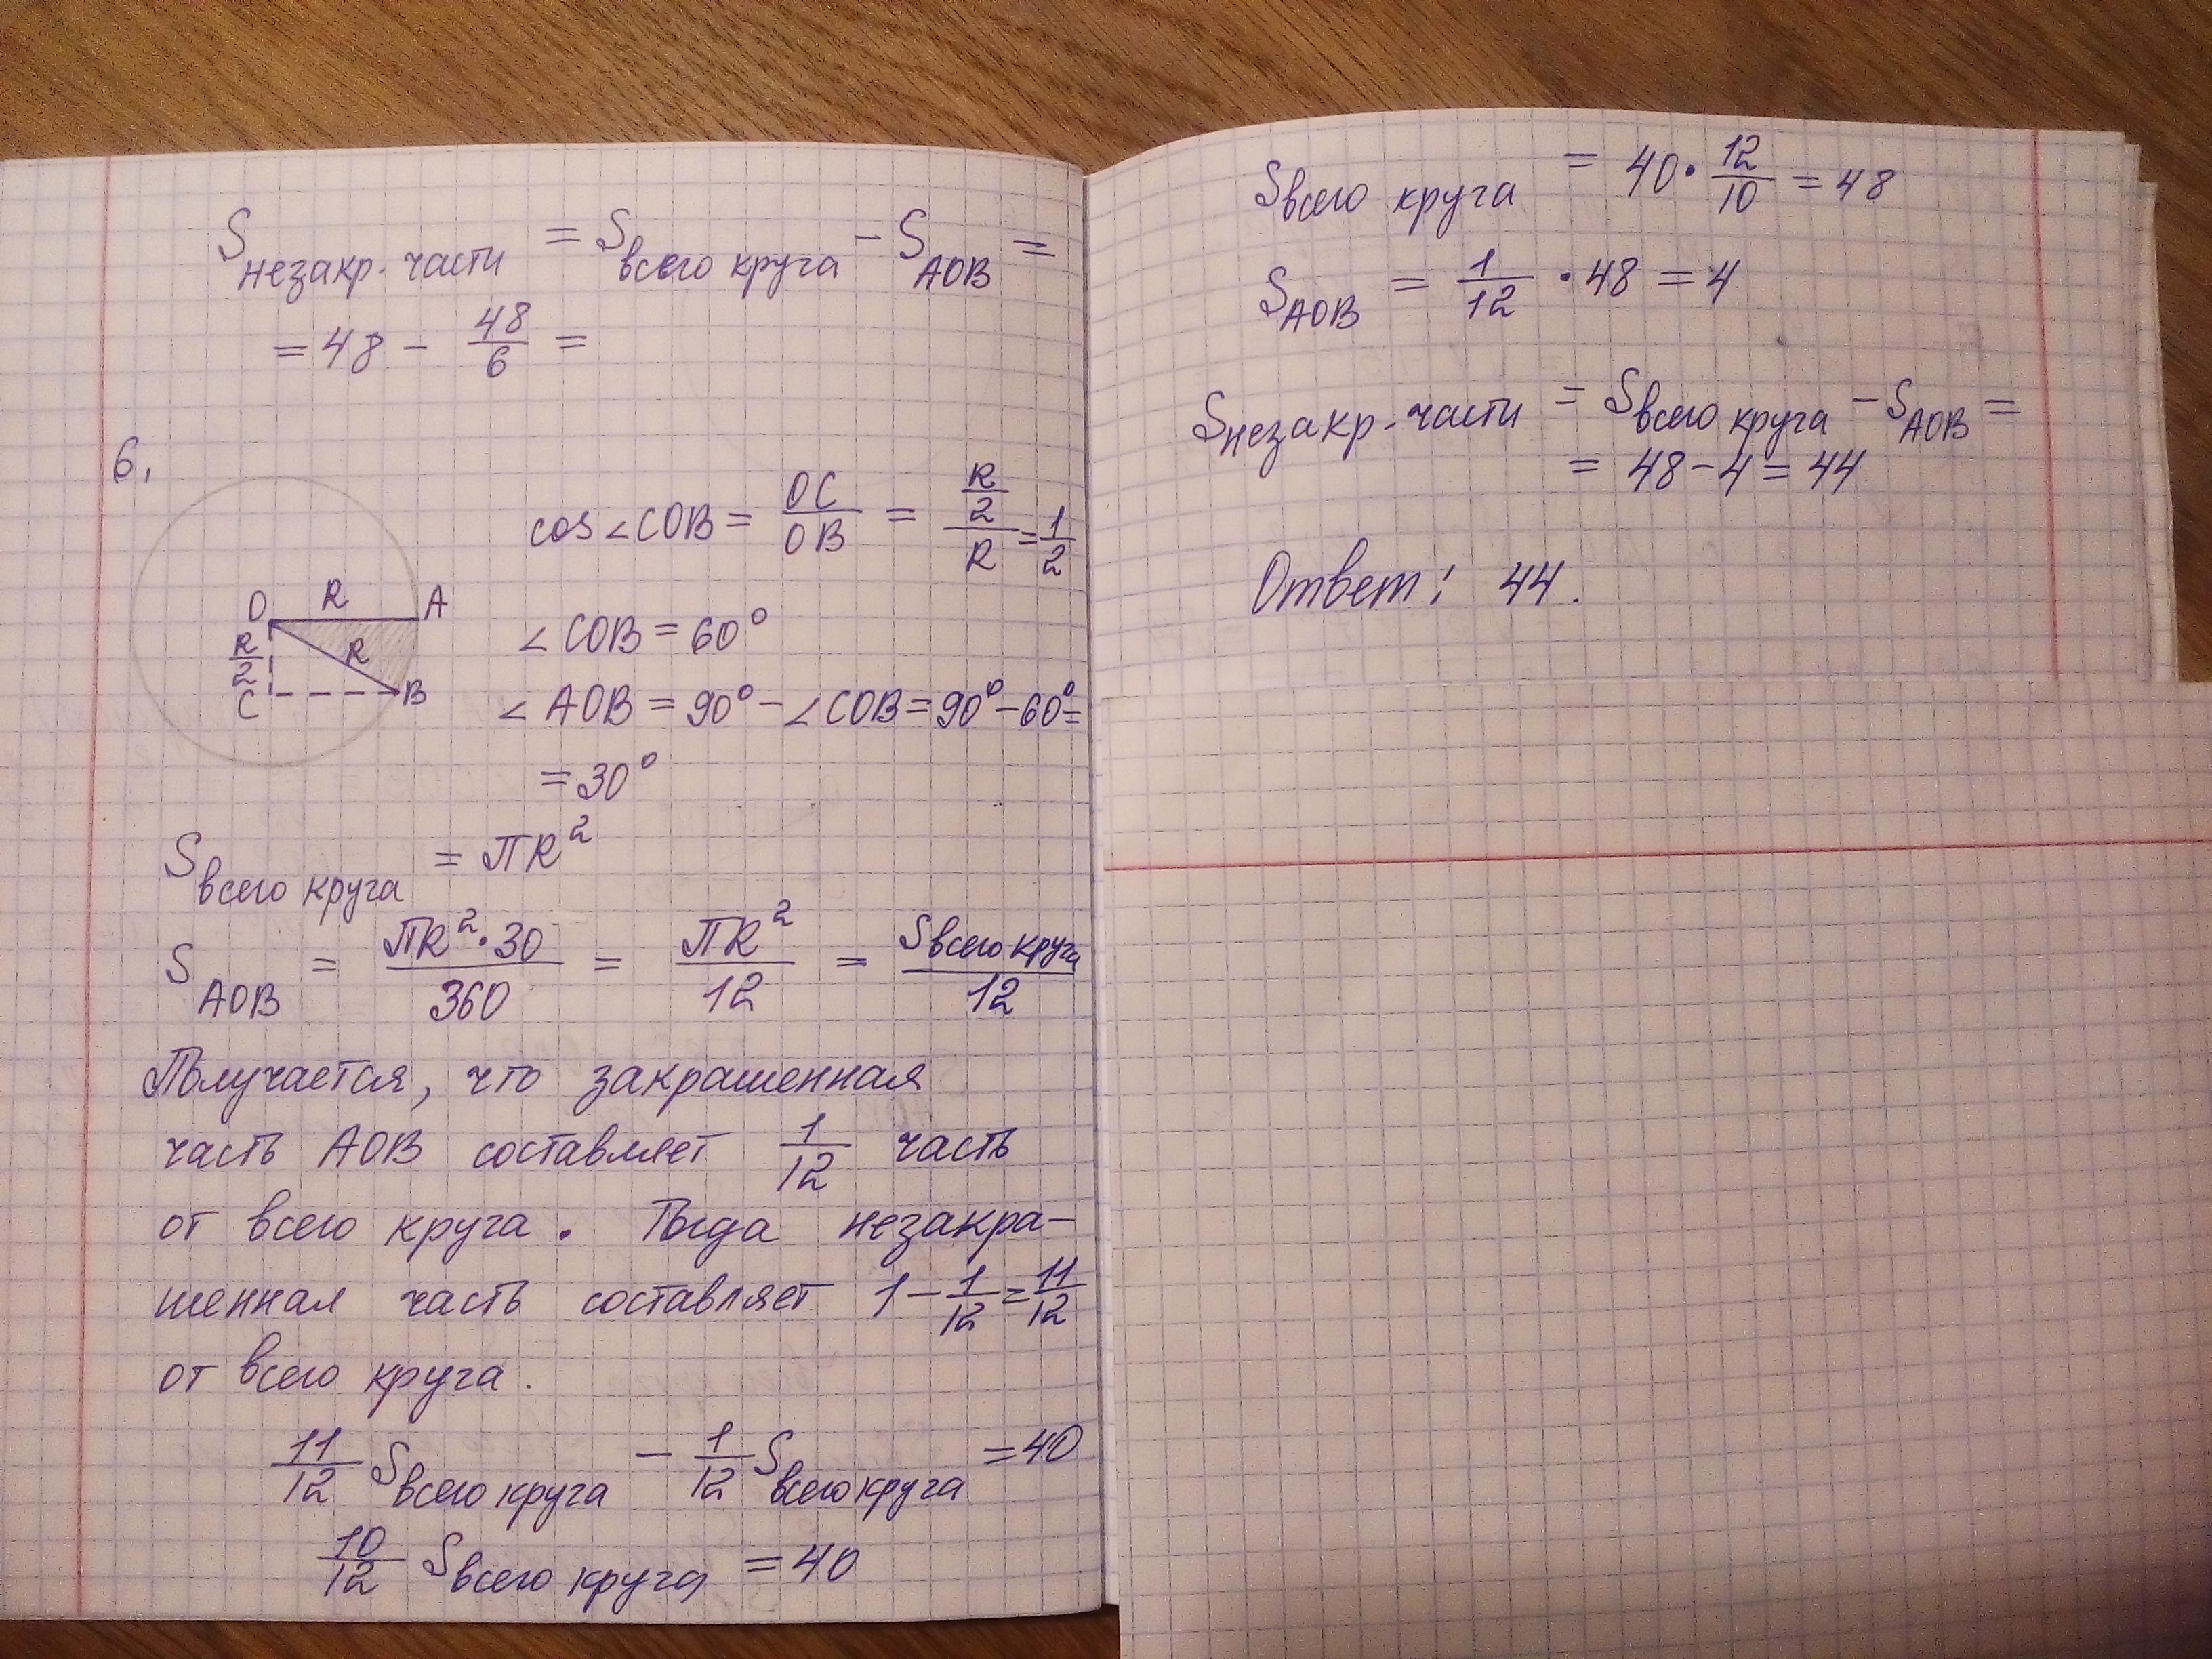 S незакр. части = S всего круга − S AOB =
= 48 − 48/6 =
6.
O R A
R/2 R
C B
cos∠COB = OC/OB = (R/2)/R = 1/2
∠COB = 60°
∠AOB = 90° − ∠COB = 90° − 60° =
= 30°
S всего круга = πR²
S AOB = πR²·30/360 = πR²/12 = S всего круга/12
Получается, что закрашенная
часть AOB составляет 1/12 часть
от всего круга. Тогда незакра-
шенная часть составляет 1 − 1/12 = 11/12
от всего круга.
11/12 S всего круга − 1/12 S всего круга = 40
10/12 S всего круга = 40
S всего круга = 40 · 12/10 = 48
S AOB = 1/12 · 48 = 4
S незакр. части = S всего круга − S AOB =
= 48 − 4 = 44
Ответ: 44.